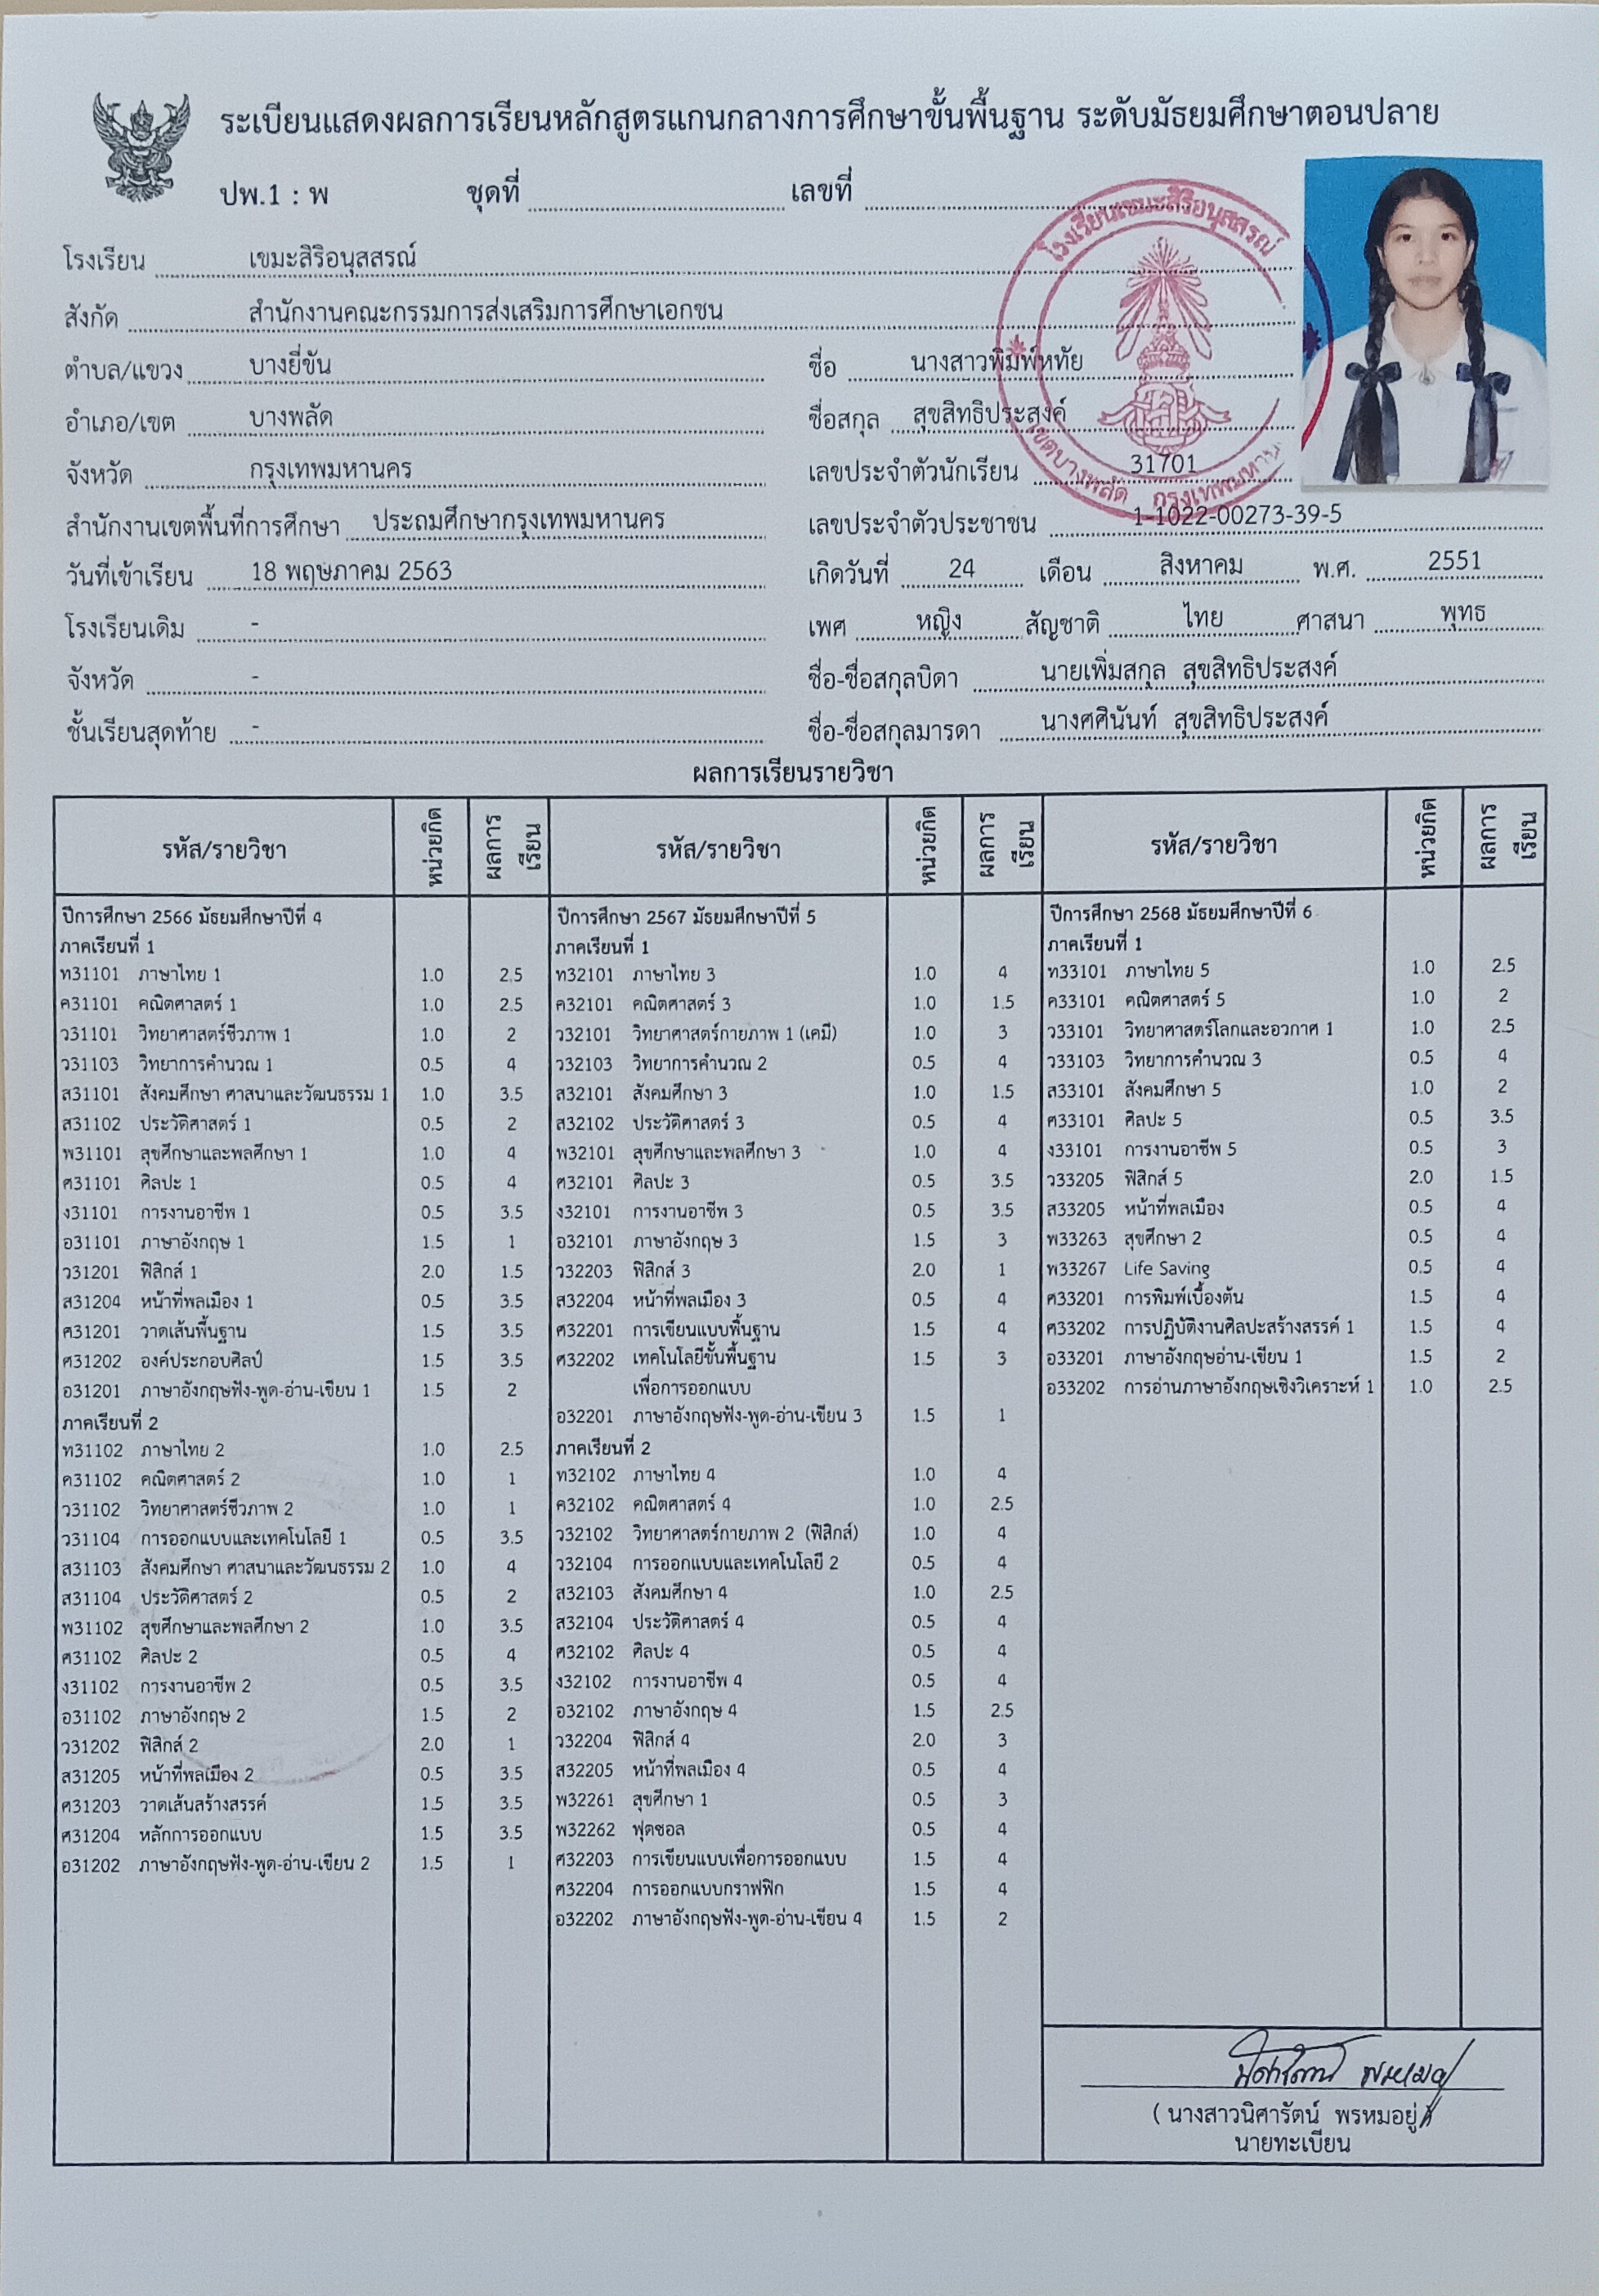 ระเบียนแสดงผลการเรียนหลักสูตรแกนกลางการศึกษาขั้นพื้นฐาน ระดับมัธยมศึกษาตอนปลาย
ปพ.1 : พ ชุดที่ เลขที่
โรงเรียน เขมะสิริอนุสสรณ์
สังกัด สำนักงานคณะกรรมการส่งเสริมการศึกษาเอกชน
ตำบล/แขวง บางยี่ขัน
อำเภอ/เขต บางพลัด
จังหวัด กรุงเทพมหานคร
สำนักงานเขตพื้นที่การศึกษา ประถมศึกษากรุงเทพมหานคร
วันที่เข้าเรียน 18 พฤษภาคม 2563
โรงเรียนเดิม -
จังหวัด -
ชั้นเรียนสุดท้าย -
โรงเรียนเขมะสิริอนุสสรณ์
เขตบางพลัด กรุงเทพมหาน
ชื่อ นางสาวพิมพ์หทัย
ชื่อสกุล สุขสิทธิประสงค์
เลขประจำตัวนักเรียน 31701
เลขประจำตัวประชาชน 1-1022-00273-39-5
เกิดวันที่ 24 เดือน สิงหาคม พ.ศ. 2551
เพศ หญิง สัญชาติ ไทย ศาสนา พุทธ
ชื่อ-ชื่อสกุลบิดา นายเพิ่มสกุล สุขสิทธิประสงค์
ชื่อ-ชื่อสกุลมารดา นางศศินันท์ สุขสิทธิประสงค์
ผลการเรียนรายวิชา
รหัส/รายวิชา หน่วยกิต ผลการเรียน
ปีการศึกษา 2566 มัธยมศึกษาปีที่ 4
ภาคเรียนที่ 1
ท31101 ภาษาไทย 1 1.0 2.5
ค31101 คณิตศาสตร์ 1 1.0 2.5
ว31101 วิทยาศาสตร์ชีวภาพ 1 1.0 2
ว31103 วิทยาการคำนวณ 1 0.5 4
ส31101 สังคมศึกษา ศาสนาและวัฒนธรรม 1 1.0 3.5
ส31102 ประวัติศาสตร์ 1 0.5 2
พ31101 สุขศึกษาและพลศึกษา 1 1.0 4
ศ31101 ศิลปะ 1 0.5 4
ง31101 การงานอาชีพ 1 0.5 3.5
อ31101 ภาษาอังกฤษ 1 1.5 1
ว31201 ฟิสิกส์ 1 2.0 1.5
ส31204 หน้าที่พลเมือง 1 0.5 3.5
ศ31201 วาดเส้นพื้นฐาน 1.5 3.5
ศ31202 องค์ประกอบศิลป์ 1.5 3.5
อ31201 ภาษาอังกฤษฟัง-พูด-อ่าน-เขียน 1 1.5 2
ภาคเรียนที่ 2
ท31102 ภาษาไทย 2 1.0 2.5
ค31102 คณิตศาสตร์ 2 1.0 1
ว31102 วิทยาศาสตร์ชีวภาพ 2 1.0 1
ว31104 การออกแบบและเทคโนโลยี 1 0.5 3.5
ส31103 สังคมศึกษา ศาสนาและวัฒนธรรม 2 1.0 4
ส31104 ประวัติศาสตร์ 2 0.5 2
พ31102 สุขศึกษาและพลศึกษา 2 1.0 3.5
ศ31102 ศิลปะ 2 0.5 4
ง31102 การงานอาชีพ 2 0.5 3.5
อ31102 ภาษาอังกฤษ 2 1.5 2
ว31202 ฟิสิกส์ 2 2.0 1
ส31205 หน้าที่พลเมือง 2 0.5 3.5
ศ31203 วาดเส้นสร้างสรรค์ 1.5 3.5
ศ31204 หลักการออกแบบ 1.5 3.5
อ31202 ภาษาอังกฤษฟัง-พูด-อ่าน-เขียน 2 1.5 1
รหัส/รายวิชา หน่วยกิต ผลการเรียน
ปีการศึกษา 2567 มัธยมศึกษาปีที่ 5
ภาคเรียนที่ 1
ท32101 ภาษาไทย 3 1.0 4
ค32101 คณิตศาสตร์ 3 1.0 1.5
ว32101 วิทยาศาสตร์กายภาพ 1 (เคมี) 1.0 3
ว32103 วิทยาการคำนวณ 2 0.5 4
ส32101 สังคมศึกษา 3 1.0 1.5
ส32102 ประวัติศาสตร์ 3 0.5 4
พ32101 สุขศึกษาและพลศึกษา 3 1.0 4
ศ32101 ศิลปะ 3 0.5 3.5
ง32101 การงานอาชีพ 3 0.5 3.5
อ32101 ภาษาอังกฤษ 3 1.5 3
ว32203 ฟิสิกส์ 3 2.0 1
ส32204 หน้าที่พลเมือง 3 0.5 4
ศ32201 การเขียนแบบพื้นฐาน 1.5 4
ศ32202 เทคโนโลยีขั้นพื้นฐาน 1.5 3
เพื่อการออกแบบ
อ32201 ภาษาอังกฤษฟัง-พูด-อ่าน-เขียน 3 1.5 1
ภาคเรียนที่ 2
ท32102 ภาษาไทย 4 1.0 4
ค32102 คณิตศาสตร์ 4 1.0 2.5
ว32102 วิทยาศาสตร์กายภาพ 2 (ฟิสิกส์) 1.0 4
ว32104 การออกแบบและเทคโนโลยี 2 0.5 4
ส32103 สังคมศึกษา 4 1.0 2.5
ส32104 ประวัติศาสตร์ 4 0.5 4
ศ32102 ศิลปะ 4 0.5 4
ง32102 การงานอาชีพ 4 0.5 4
อ32102 ภาษาอังกฤษ 4 1.5 2.5
ว32204 ฟิสิกส์ 4 2.0 3
ส32205 หน้าที่พลเมือง 4 0.5 4
พ32261 สุขศึกษา 1 0.5 3
พ32262 ฟุตซอล 0.5 4
ศ32203 การเขียนแบบเพื่อการออกแบบ 1.5 4
ศ32204 การออกแบบกราฟฟิก 1.5 4
อ32202 ภาษาอังกฤษฟัง-พูด-อ่าน-เขียน 4 1.5 2
รหัส/รายวิชา หน่วยกิต ผลการเรียน
ปีการศึกษา 2568 มัธยมศึกษาปีที่ 6
ภาคเรียนที่ 1
ท33101 ภาษาไทย 5 1.0 2.5
ค33101 คณิตศาสตร์ 5 1.0 2
ว33101 วิทยาศาสตร์โลกและอวกาศ 1 1.0 2.5
ว33103 วิทยาการคำนวณ 3 0.5 4
ส33101 สังคมศึกษา 5 1.0 2
ศ33101 ศิลปะ 5 0.5 3.5
ง33101 การงานอาชีพ 5 0.5 3
ว33205 ฟิสิกส์ 5 2.0 1.5
ส33205 หน้าที่พลเมือง 0.5 4
พ33263 สุขศึกษา 2 0.5 4
พ33267 Life Saving 0.5 4
ศ33201 การพิมพ์เบื้องต้น 1.5 4
ศ33202 การปฏิบัติงานศิลปะสร้างสรรค์ 1 1.5 4
อ33201 ภาษาอังกฤษอ่าน-เขียน 1 1.5 2
อ33202 การอ่านภาษาอังกฤษเชิงวิเคราะห์ 1 1.0 2.5
( นางสาวนิศารัตน์ พรหมอยู่ )
นายทะเบียน